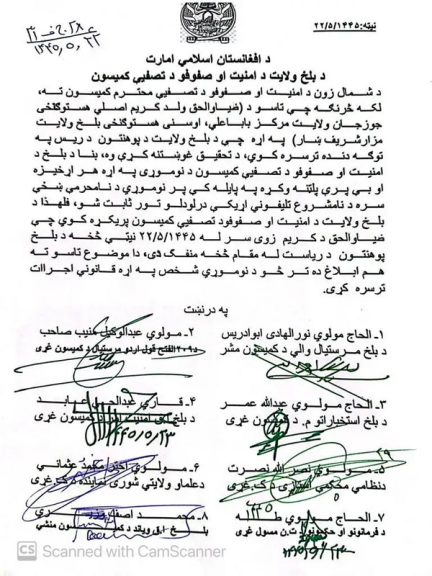 نیټه: ۲۲/۵/۱۴۴۵
د افغانستان اسلامي امارت
د بلخ ولایت د امنیت او صفوفو د تصفیې کمیسون
د شمال زون د امنیت او صفوفو د تصفیې محترم کمیسون ته،
لکه څرنګه چې تاسو د (ضیاوالحق ولد کریم اصلي هستوګنځی
جوزجان ولایت مرکز باباعلي، اوسنی هستوګنځی بلخ ولایت
مزارشریف ښار) په اړه چې د بلخ ولایت د پوهنتون د رییس په
توګه دنده ترسره کوي، د تحقیق غوښتنه کړي وه، بنا د بلخ د
امنیت او صفوفو د تصفیې کمیسون د نوموړي په اړه هر اړخیزه
او بې پرې پلټنه وکړه په پایله کې پر نوموړي د نامحرمې ښځې
سره د نامشروع تلیفوني اړیکې درلودلو تور ثابت شو، فلهذا د
بلخ ولایت د امنیت او صفوفود تصفیې کمیسون پریکړه کوي چې
ضیاوالحق د کریم زوی سر له ۲۲/۵/۱۴۴۵ نیټې څخه د بلخ
پوهنتون د ریاست له مقام څخه منفک دی، دا موضوع تاسو ته
هم ابلاغ ده تر څو د نوموړي شخص په اړه قانوني اجراات
ترسره کړی.
په درنښت
۱- الحاج مولوي نورالهادی ابوادریس
د بلخ مرستیال والي د کمیشنون مشر
۲- مولوي عبدالوکیل منیب صاحب
د۲۰۹الفتح قول اردو مرستیال د کمیسون غړی
۳- الحاج مولوي عبدالله عمر
د بلخ استخباراتو م. د کمیسون غړی
۴- قاري عابد
د بلخ امنیت د کمیسون غړی
۵- مولوي نصر الله نصرت
دنظامي محکمې استازی د ک.غړی
۶- مولوي عثماني
دعلماو ولایتي شوری نماینده د ک.غړی
۷- الحاج مولوي طه
د فرمانونو او حکمونو ت.ن مسول غړی
۸- محمد
CS Scanned with CamScanner